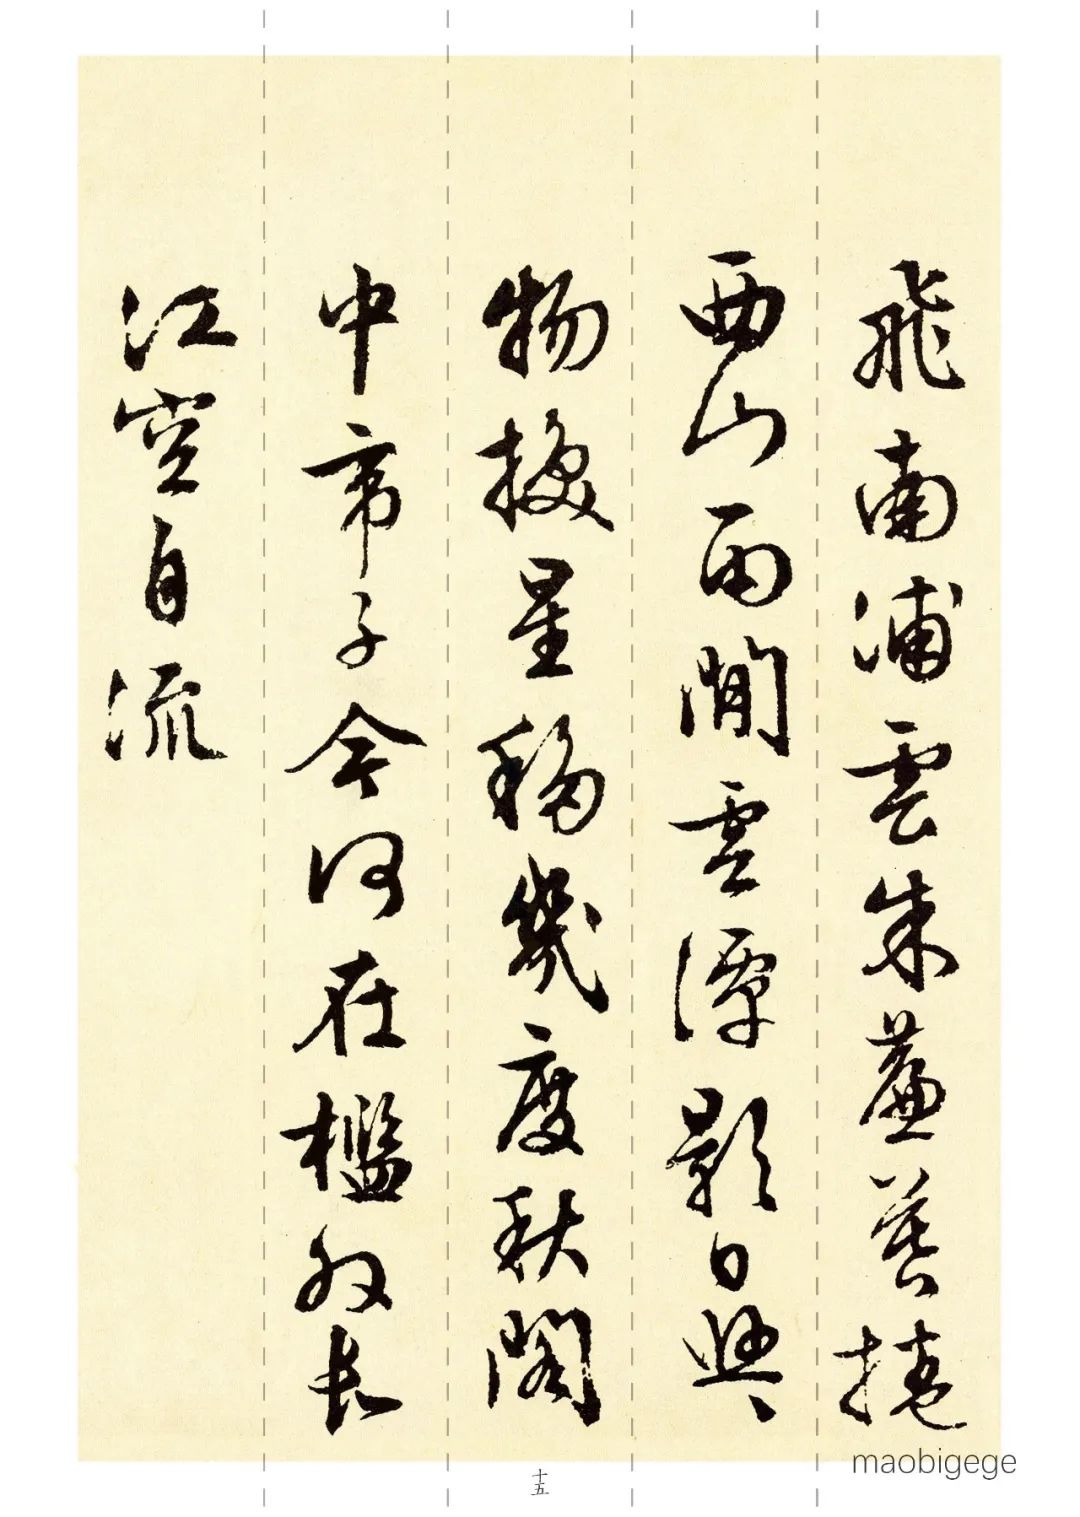 飛南浦雲朱簾暮捲
西山雨閒雲潭影日悠〻
物換星移幾度秋閣
中帝子今何在檻外長
江空自流
十五
maobigege